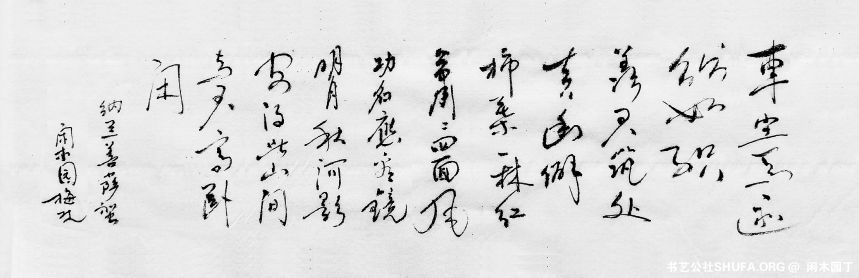 車尘马迹
纷如织
羡君筑处
真幽僻
柿葉一林红
萧萧四面风
功名應看鏡
明月秋河影
安得此山间
与君高卧
闲
纳兰菩萨蛮
闲木园
书艺公社SHUFA.ORG @ 闲木园丁